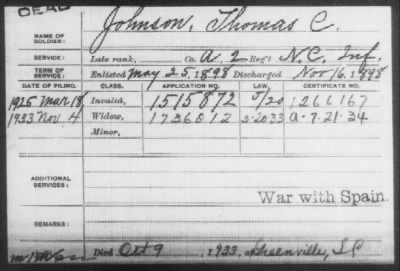 DEAD
NAME OF SOLDIER: Johnson, Thomas C.
SERVICE: Late rank, Co. A, 2 Reg't N.C. Inf.
TERM OF SERVICE: Enlisted May 25, 1898 Discharged Nov 16, 1898
DATE OF FILING. CLASS. APPLICATION NO. LAW. CERTIFICATE NO.
1925 Mar 18 Invalid, 1515872 5/20 1266167
1933 Nov. 4 Widow, 1736012 3-20-33 A-7-21-34
Minor,
ADDITIONAL SERVICES:
War with Spain.
REMARKS:
Died Oct 9, 1933, Greenville, S.C.